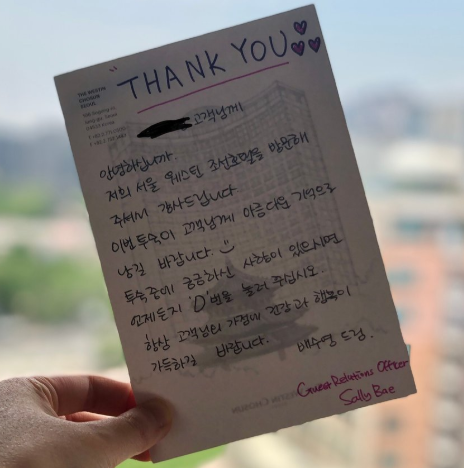 "THANK YOU
THE WESTIN
CHOSUN
SEOUL
고객님께
안녕하십니까.
저희 서울 웨스틴 조선호텔을 방문해
주셔서 감사드립니다
이번 투숙이 고객님께 아름다운 기억으로
남길 바랍니다.
투숙중에 궁금하신 사항이 있으시면
언제든지 '0'번을 눌러 주십시오.
항상 고객님의 가정에 건강과 행복이
가득하길 바랍니다. 배수영 드림.
Guest Relations Officer
Sally Bae